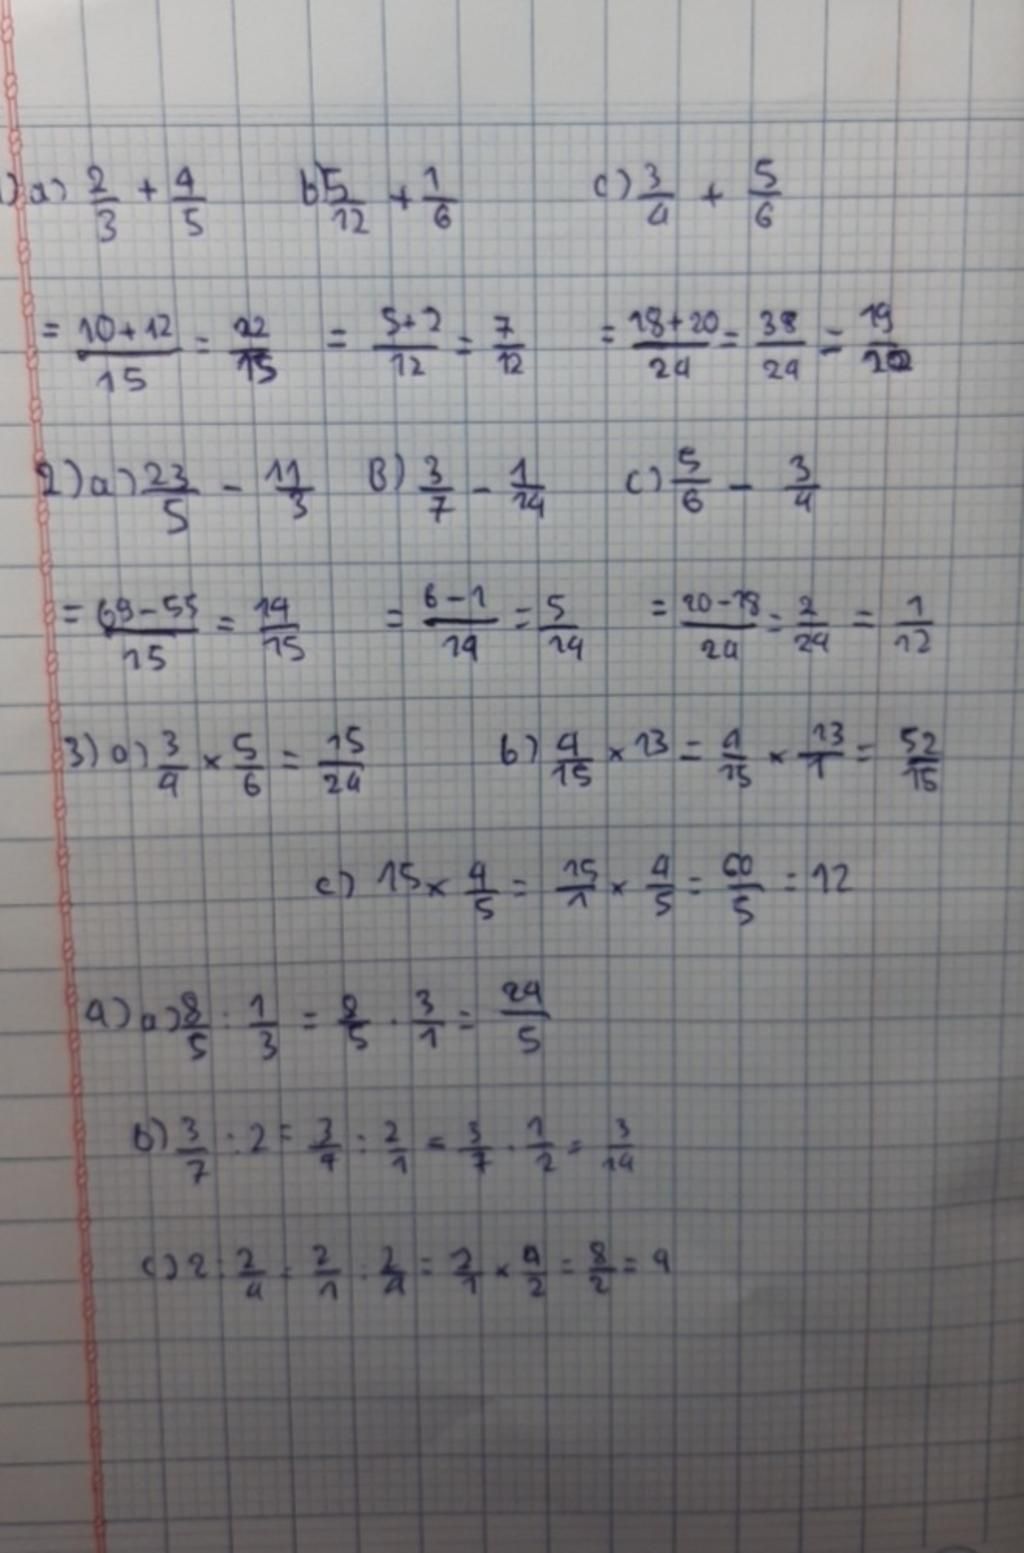 1) a) 2/3 + 4/5 b) 5/12 + 1/6 c) 3/4 + 5/6
= (10+12)/15 = 22/15 = (5+2)/12 = 7/12 = (18+20)/24 = 38/24 = 19/12
2) a) 23/5 - 11/3 B) 3/7 - 1/14 c) 5/6 - 3/4
= (69-55)/15 = 14/15 = (6-1)/14 = 5/14 = (20-18)/24 = 2/24 = 1/12
3) a) 3/4 × 5/6 = 15/24 b) 4/15 × 13 = 4/15 × 13/1 = 52/15
c) 15 × 4/5 = 15/1 × 4/5 = 60/5 = 12
4) a) 8/5 : 1/3 = 8/5 · 3/1 = 24/5
b) 3/7 : 2 = 3/7 : 2/1 = 3/7 · 1/2 = 3/14
c) 2 : 2/4 = 2/1 : 2/4 = 2/1 × 4/2 = 8/2 = 4